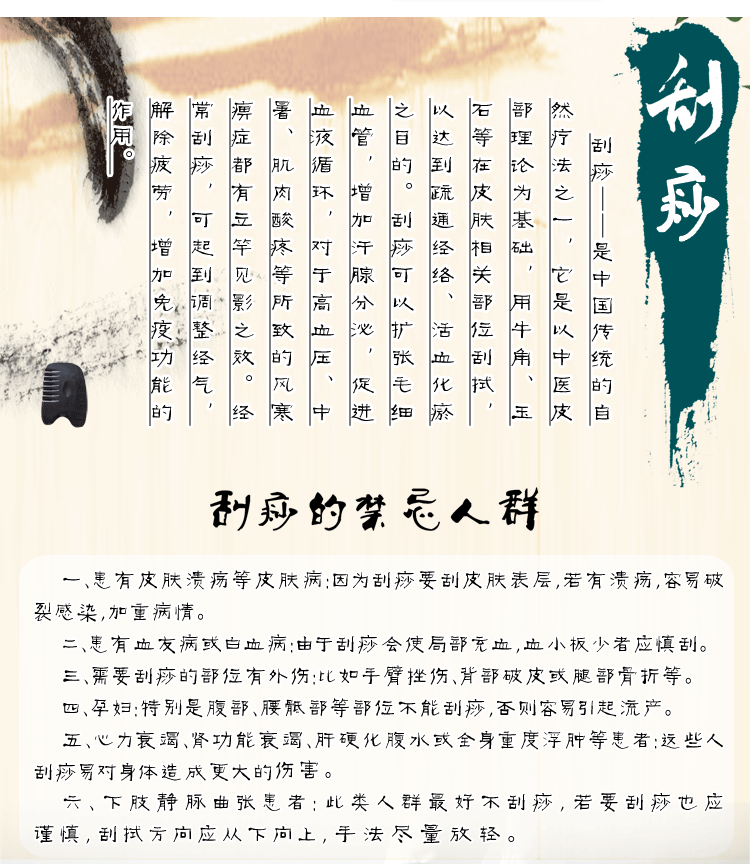 刮痧
刮痧——是中国传统的自
然疗法之一，它是以中医皮
部理论为基础，用牛角、玉
石等在皮肤相关部位刮拭，
以达到疏通经络、活血化瘀
之目的。刮痧可以扩张毛细
血管，增加汗腺分泌，促进
血液循环，对于高血压、中
暑、肌肉酸疼等所致的风寒
痹症都有立竿见影之效。经
常刮痧，可起到调整经气，
解除疲劳，增加免疫功能的
作用。
刮痧的禁忌人群
一、患有皮肤溃疡等皮肤病;因为刮痧要刮皮肤表层,若有溃疡,容易破
裂感染,加重病情。
二、患有血友病或白血病;由于刮痧会使局部充血,血小板少者应慎刮。
三、需要刮痧的部位有外伤;比如手臂挫伤、背部破皮或腿部骨折等。
四、孕妇;特别是腹部、腰骶部等部位不能刮痧,否则容易引起流产。
五、心力衰竭、肾功能衰竭、肝硬化腹水或全身重度浮肿等患者;这些人
刮痧易对身体造成更大的伤害。
六、下肢静脉曲张患者;此类人群最好不刮痧,若要刮痧也应
谨慎,刮拭方向应从下向上,手法尽量放轻。